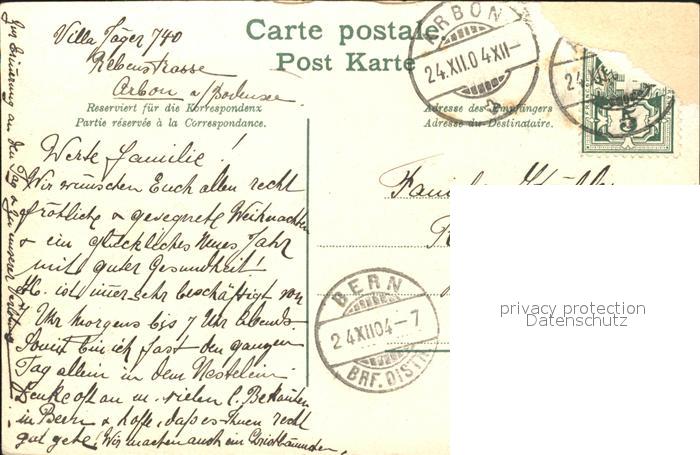 Carte postale.
Post Karte
Villa Jäger 740
Rebenstrasse
Arbon a/Bodensee
Reserviert für die Korrespondenz
Partie réservée à la Correspondance.
Adresse des Empfängers
Adresse du Destinataire.
ARBON
24.XII.04 XII-
5
Werte Familie!
Wir wünschen Euch allen recht
fröhliche & gesegnete Weihnachten
& ein glückliches Neues Jahr
mit guter Gesundheit!
H. ist immer sehr beschäftigt von
7 Uhr morgens bis 7 Uhr abends
Somit bin ich fast den ganzen
Tag allein in dem Nestelein.
Denke oft an m. vielen l. Bekannten
in Bern & hoffe, dass es Ihnen recht
gut gehe! Wir machen auch ein Christbäumchen,
Zur Erinnerung an den Tag
Familie
BERN
24.XII.04-7
BRF. DISTR.
privacy protection
Datenschutz